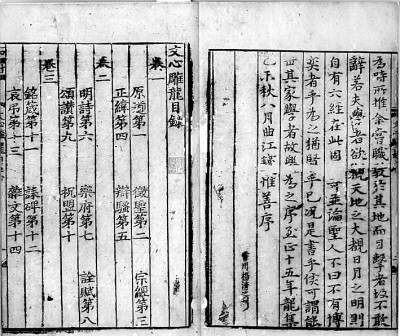 為時所推余嘗職教於其地而目擊者故不敢
辭若夫學者欲觀天地之大覩日月之明則
自有六經在此固可並論聖人不曰不有博
奕者乎為之猶賢乎已況是書乎侯可謂能
世其家學者故樂為之序至正十五年龍集
乙未秋八月曲江錢惟善序
文心雕龍目錄
卷一
原道第一 徵聖第二 宗經第三
正緯第四 辯騷第五
卷二
明詩第六 樂府第七 詮賦第八
頌讚第九 祝盟第十
卷三
銘箴第十一 誄碑第十二
哀吊第十三 雜文第十四